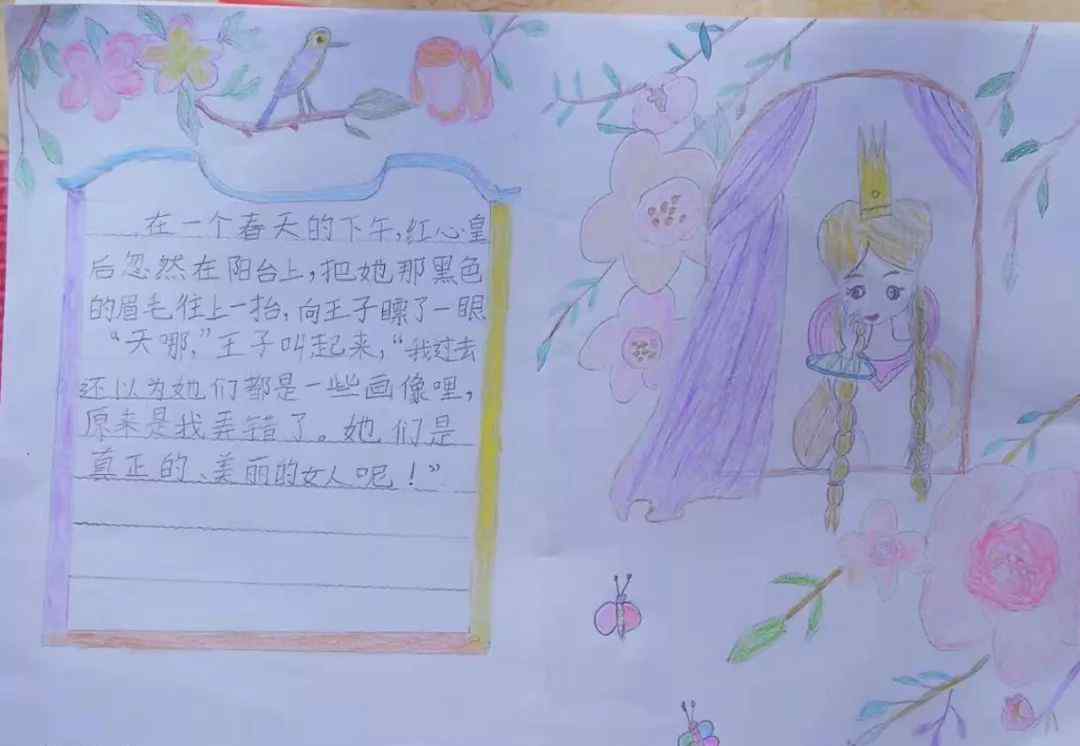 在一个春天的下午,红心皇
后忽然在阳台上,把她那黑色
的眉毛往上一抬,向王子瞟了一眼
“天哪,”王子叫起来,“我过去
还以为她们都是一些画像哩,
原来是我弄错了。她们是
真正的、美丽的女人呢!”